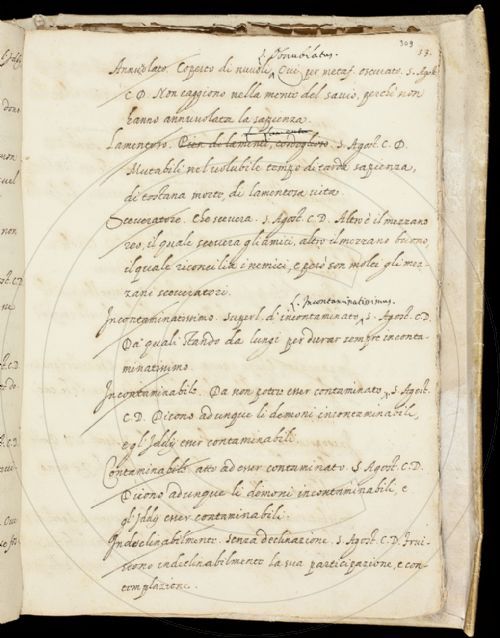 309
13.
L. obnubilatus.
Annuvolato. Coperto di nuvoli. Qui per metaf. oscurato. S. Agost.
C. D. Non caggiono nella mente del savio, perchè non
hanno annuvolata la sapienza.
Lamentoso. Pien di lamenti, S. Agost. C. D.
Mutabili nel volubile tempo di tarda sapienza,
di tostana morte, di lamentosa vita.
Sceveratore. Che scevera. S. Agost. C. D. Altro è il mezzano
reo, il quale scevera gli amici, altro il mezzano buono,
il quale riconcilia i nemici, e però son molti gli mez-
zani sceveratori.
L. Incontaminatissimus.
Incontaminatissimo. Superl. d'incontaminato. S. Agost. C. D.
Da' quali stando da lungi per durar sempre inconta-
minatissimo.
Incontaminabile. Da non poter esser contaminato. S. Agost.
C. D. Dicono adunque li demoni incontaminabili,
e gl'Iddij esser contaminabili.
Contaminabile. atto ad esser contaminato. S. Agost. C. D.
Dicono adunque li demoni incontaminabili, e
gl'Iddij esser contaminabili.
Indeclinabilmente. Senza declinazione. S. Agost. C. D. Frui-
scono indeclinabilmente la sua participazione, e con-
templazione.